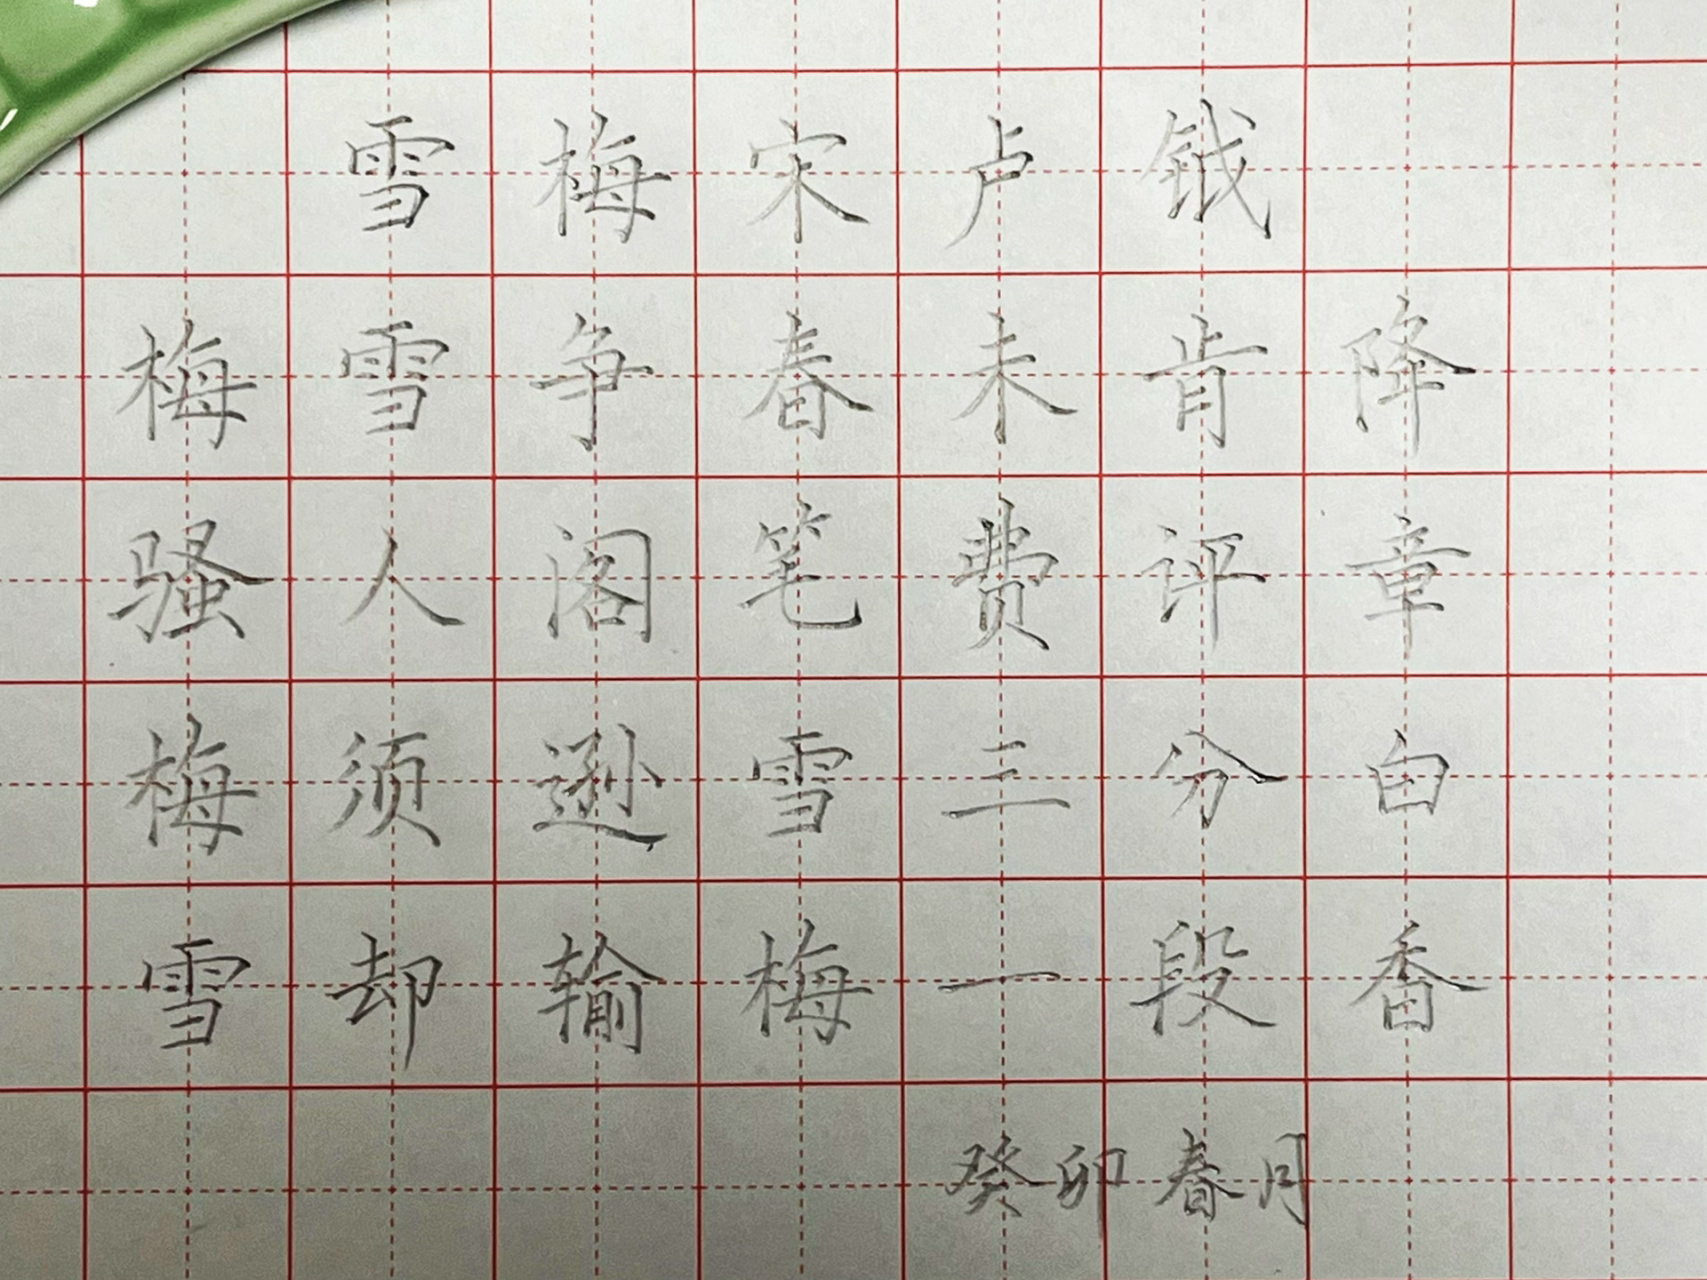 雪梅宋卢钺
梅雪争春未肯降
骚人阁笔费评章
梅须逊雪三分白
雪却输梅一段香
癸卯春月